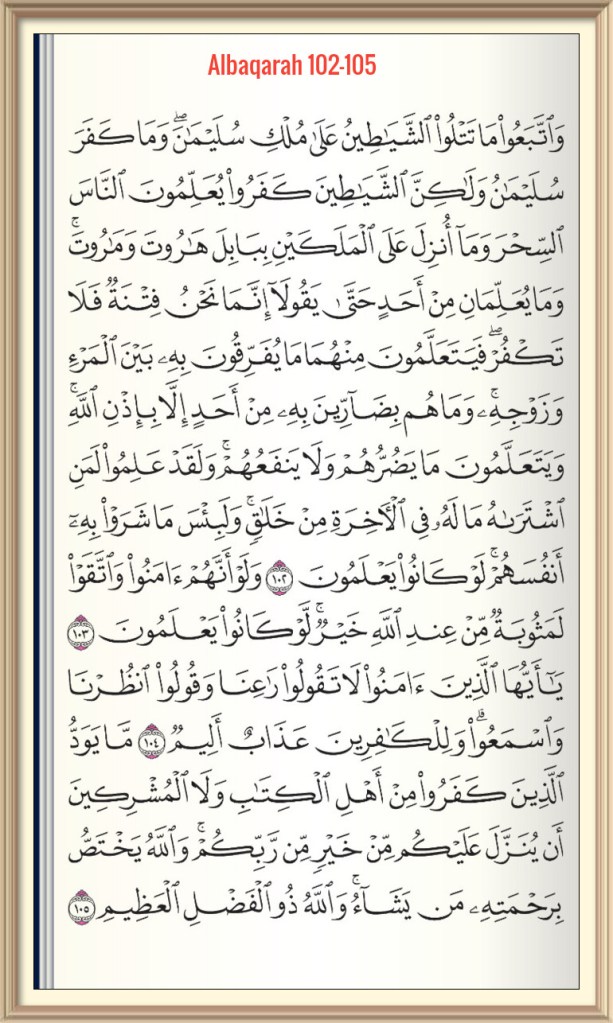 Albaqarah 102-105
وَٱتَّبَعُوا۟ مَا تَتْلُوا۟ ٱلشَّيَـٰطِينُ عَلَىٰ مُلْكِ سُلَيْمَـٰنَ ۖ وَمَا كَفَرَ
سُلَيْمَـٰنُ وَلَـٰكِنَّ ٱلشَّيَـٰطِينَ كَفَرُوا۟ يُعَلِّمُونَ ٱلنَّاسَ
ٱلسِّحْرَ وَمَآ أُنزِلَ عَلَى ٱلْمَلَكَيْنِ بِبَابِلَ هَـٰرُوتَ وَمَـٰرُوتَ ۚ
وَمَا يُعَلِّمَانِ مِنْ أَحَدٍ حَتَّىٰ يَقُولَآ إِنَّمَا نَحْنُ فِتْنَةٌ فَلَا
تَكْفُرْ ۖ فَيَتَعَلَّمُونَ مِنْهُمَا مَا يُفَرِّقُونَ بِهِۦ بَيْنَ ٱلْمَرْءِ
وَزَوْجِهِۦ ۚ وَمَا هُم بِضَآرِّينَ بِهِۦ مِنْ أَحَدٍ إِلَّا بِإِذْنِ ٱللَّهِ ۚ
وَيَتَعَلَّمُونَ مَا يَضُرُّهُمْ وَلَا يَنفَعُهُمْ ۚ وَلَقَدْ عَلِمُوا۟ لَمَنِ
ٱشْتَرَىٰهُ مَا لَهُۥ فِى ٱلْـَٔاخِرَةِ مِنْ خَلَـٰقٍ ۚ وَلَبِئْسَ مَا شَرَوْا۟ بِهِۦٓ
أَنفُسَهُمْ ۚ لَوْ كَانُوا۟ يَعْلَمُونَ ١٠٢ وَلَوْ أَنَّهُمْ ءَامَنُوا۟ وَٱتَّقَوْا۟
لَمَثُوبَةٌ مِّنْ عِندِ ٱللَّهِ خَيْرٌ ۖ لَّوْ كَانُوا۟ يَعْلَمُونَ ١٠٣
يَـٰٓأَيُّهَا ٱلَّذِينَ ءَامَنُوا۟ لَا تَقُولُوا۟ رَٰعِنَا وَقُولُوا۟ ٱنظُرْنَا
وَٱسْمَعُوا۟ ۗ وَلِلْكَـٰفِرِينَ عَذَابٌ أَلِيمٌ ١٠٤ مَّا يَوَدُّ
ٱلَّذِينَ كَفَرُوا۟ مِنْ أَهْلِ ٱلْكِتَـٰبِ وَلَا ٱلْمُشْرِكِينَ
أَن يُنَزَّلَ عَلَيْكُم مِّنْ خَيْرٍ مِّن رَّبِّكُمْ ۗ وَٱللَّهُ يَخْتَصُّ
بِرَحْمَتِهِۦ مَن يَشَآءُ ۚ وَٱللَّهُ ذُو ٱلْفَضْلِ ٱلْعَظِيمِ ١٠٥